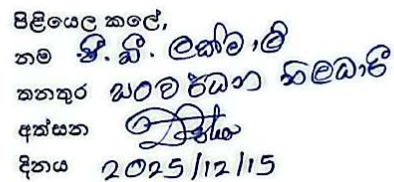 පිළියෙල කලේ,
නම පී. බී. ලක්මාලි
තනතුර සංවර්ධන නිලධාරී
අත්සන
දිනය 2025/12/15